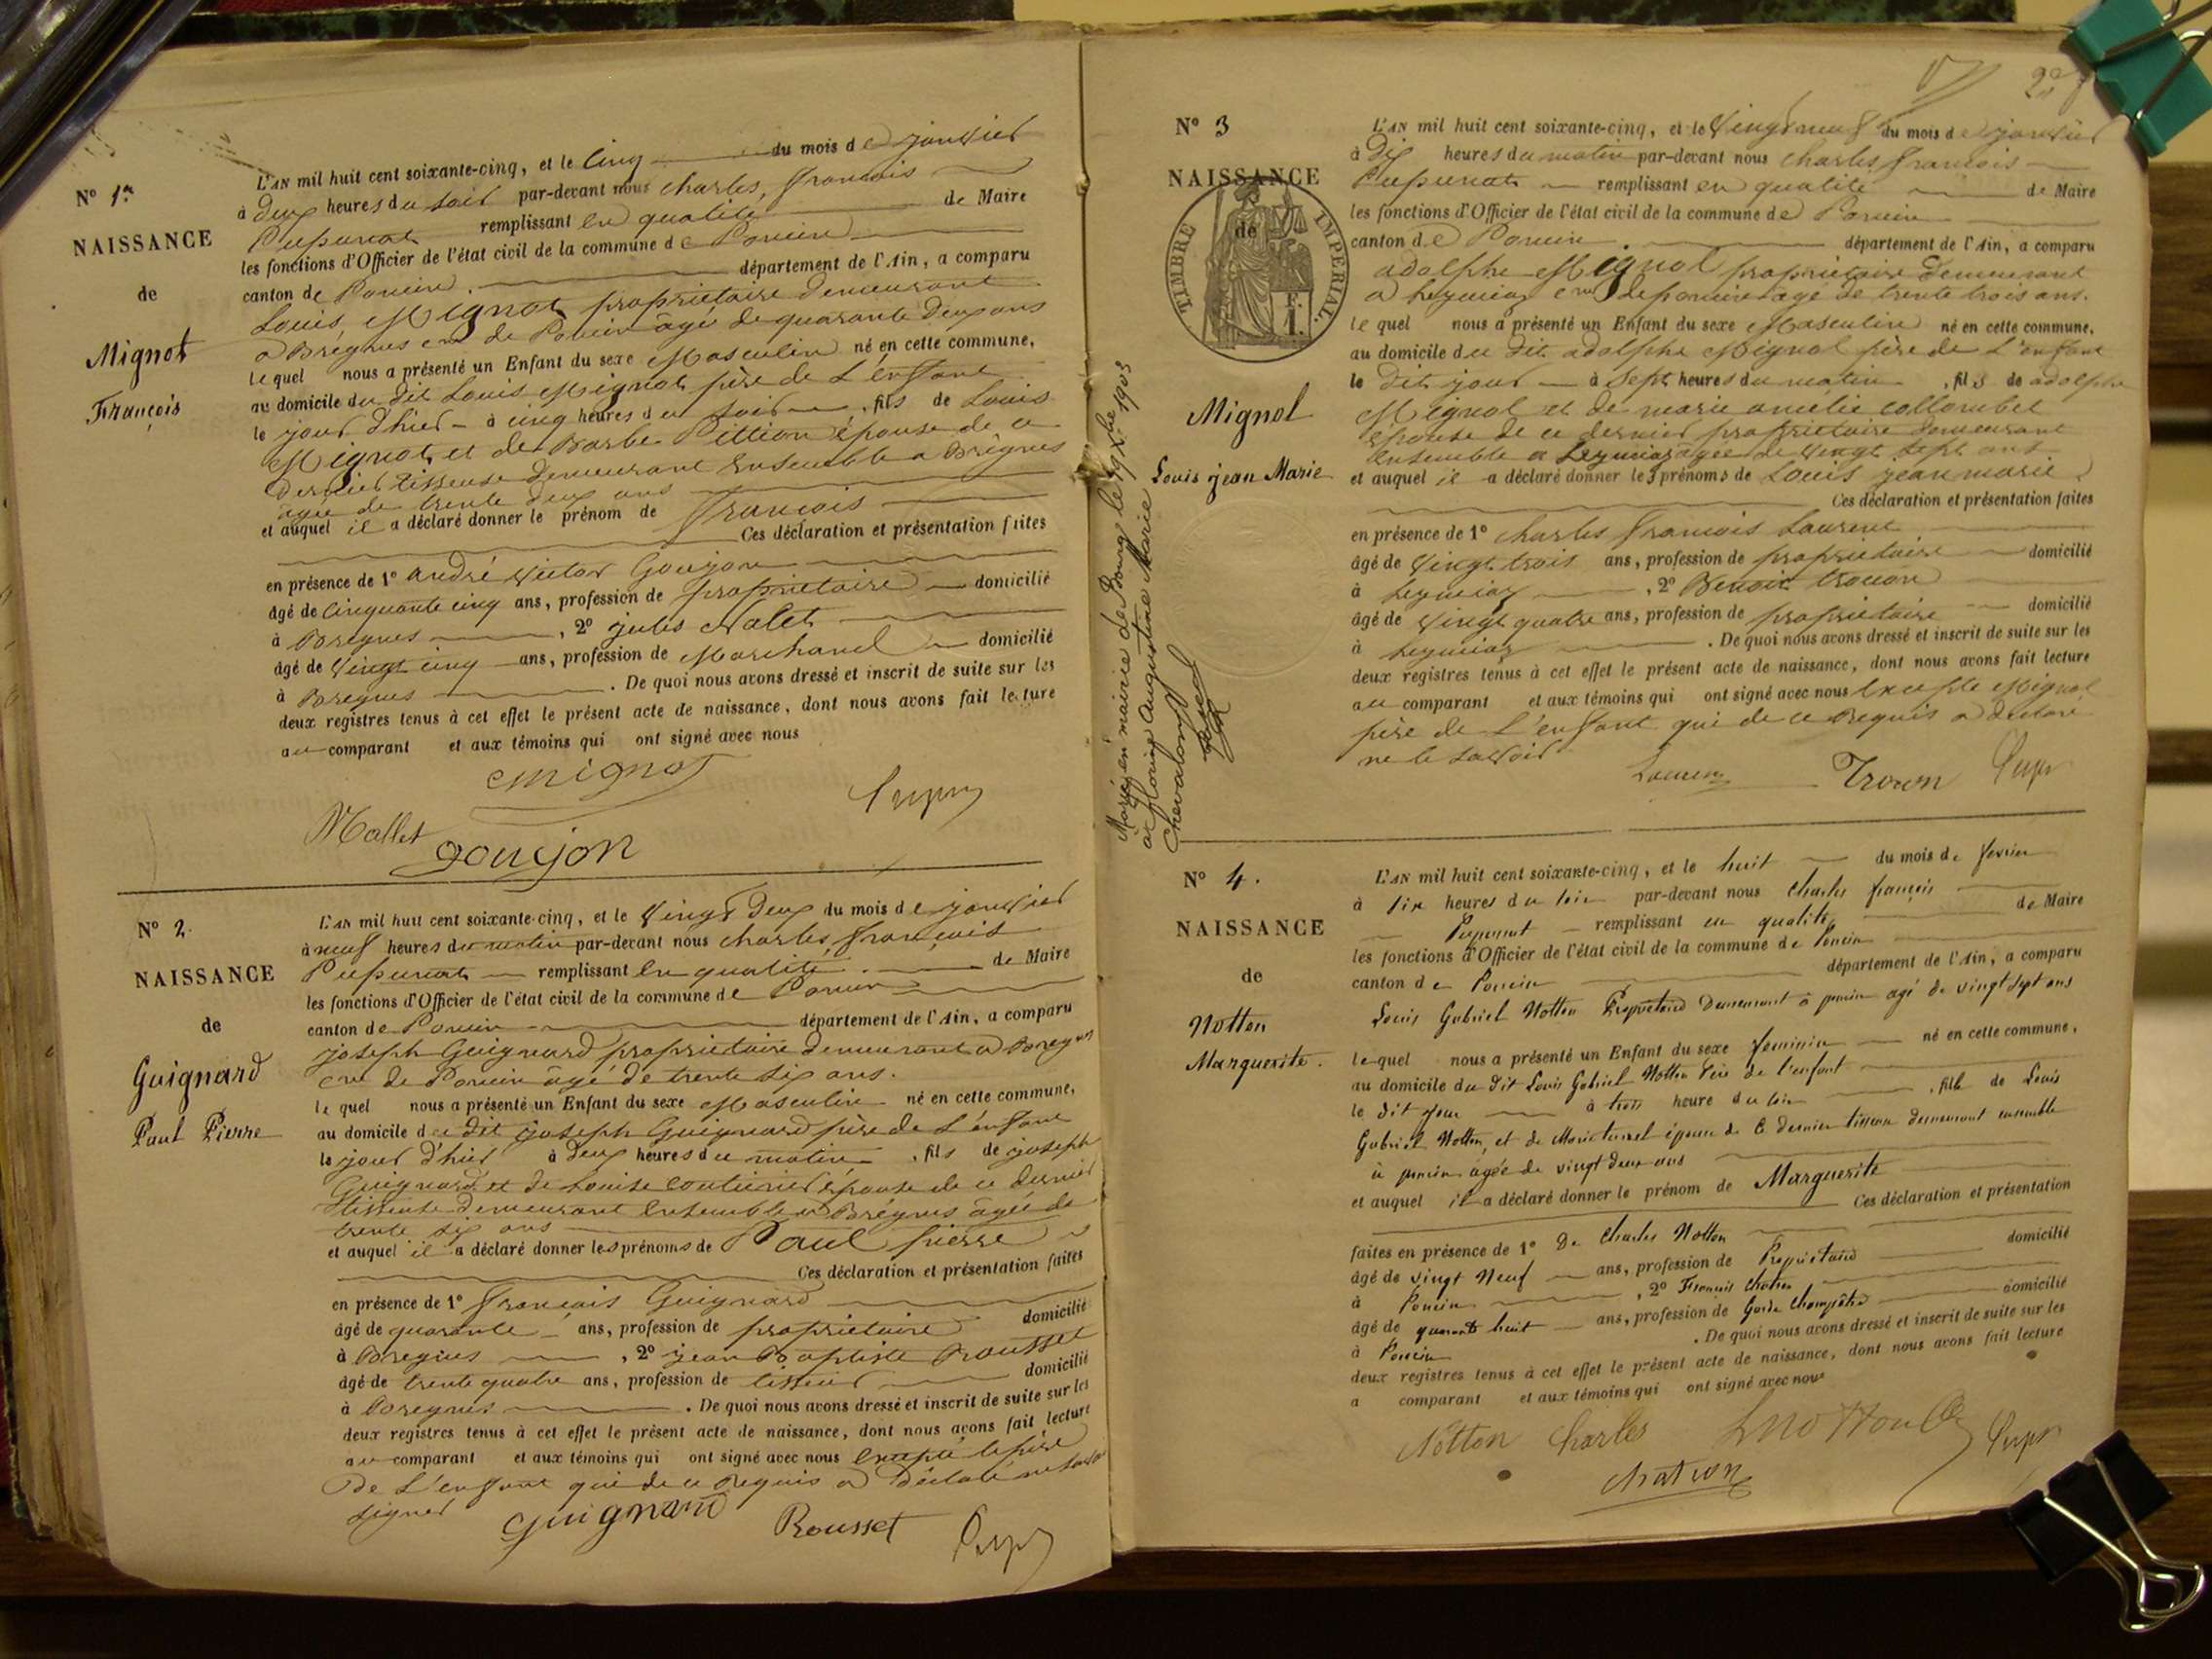 N° 1er
NAISSANCE
de
Mignot
François
L'AN mil huit cent soixante-cinq, et le Cinq du mois de janvier
à deux heures du soir par-devant nous Charles, François
Pupunat remplissant en qualité de Maire
les fonctions d'Officier de l'état civil de la commune de Poncin
canton de Poncin département de l'Ain, a comparu
Louis Mignot propriétaire demeurant
a Bregnes cne de Poncin âgé de quarante deux ans
lequel nous a présenté un Enfant du sexe Masculin né en cette commune,
au domicile du dit Louis Mignot père de L'enfant
le jour d'hier à cinq heures du soir, fils de Louis
Mignot et de Barbe Pittion épouse de ce
dernier tisseuse demeurant Ensemble a Brégnes
agée de trente deux ans
et auquel il a déclaré donner le prénom de François
Ces déclaration et présentation faites
en présence de 1° André Victor Goujon
âgé de Cinquante cinq ans, profession de propriétaire domicilié
à Bregnes, 2° jules Malet
âgé de Vingt cinq ans, profession de Marchand domicilié
à Bregnes. De quoi nous avons dressé et inscrit de suite sur les
deux registres tenus à cet effet le présent acte de naissance, dont nous avons fait lecture
au comparant et aux témoins qui ont signé avec nous
Mignot
Mallet
goujon
N° 2.
NAISSANCE
de
Guignard
Paul Pierre
L'AN mil huit cent soixante-cinq, et le Vingt Deux du mois de janvier
à neuf heures du matin par-devant nous Charles, François
Pupunat remplissant En qualité de Maire
les fonctions d'Officier de l'état civil de la commune de Poncin
canton de Poncin département de l'Ain, a comparu
joseph Guignard propriétaire demeurant a Bregnes
cne de Poncin âgé de trente six ans.
lequel nous a présenté un Enfant du sexe Masculin né en cette commune,
au domicile du dit joseph Guignard père de L'enfant
le jour d'hier à deux heures du matin, fils de joseph
Guignard et de Louise Couturier épouse de ce dernier
tisseuse demeurant Ensemble a Brégnes âgée de
trente six ans
et auquel il a déclaré donner les prénoms de Paul pierre
Ces déclaration et présentation faites
en présence de 1° François Guignard
âgé de quarante ans, profession de propriétaire domicilié
à Bregnes, 2° jean Baptiste Rousset
âgé de trente quatre ans, profession de tisseur domicilié
à Bregnes. De quoi nous avons dressé et inscrit de suite sur les
deux registres tenus à cet effet le présent acte de naissance, dont nous avons fait lecture
au comparant et aux témoins qui ont signé avec nous Excepté le père
De L'enfant qui de ce Requis a déclaré ne savoir
signer
Guignard Rousset
N° 3
NAISSANCE
de
TIMBRE IMPERIAL.
Mignol
Louis jean Marie
Marié en mairie de Bourg le 19 Xbre 1903
à Florine Augustine Marie
Chevalon
L'AN mil huit cent soixante-cinq, et le Vingt neuf du mois de janvier
à Dix heures du matin par-devant nous Charles, François
Pupunat remplissant en qualité de Maire
les fonctions d'Officier de l'état civil de la commune de Poncin
canton de Poncin département de l'Ain, a comparu
adolphe Mignol propriétaire demeurant
a Leymiaz cne de poncin agé de trente trois ans.
lequel nous a présenté un Enfant du sexe Masculin né en cette commune,
au domicile du dit adolphe Mignol père de L'enfant
le dit jour à Sept heures du matin, fils de adolphe
Mignol et de marie amélie collombet
épouse de ce dernier propriétaire demeurant
Ensemble a Leymiaz agée de Vingt sept ans
et auquel il a déclaré donner les prénoms de Louis jean marie
Ces déclaration et présentation faites
en présence de 1° Charles François Laurent
âgé de Vingt trois ans, profession de propriétaire domicilié
à Leymiaz, 2° Benoit trocon
âgé de Vingt quatre ans, profession de propriétaire domicilié
à Leymiaz. De quoi nous avons dressé et inscrit de suite sur les
deux registres tenus à cet effet le présent acte de naissance, dont nous avons fait lecture
au comparant et aux témoins qui ont signé avec nous Excepté Mignol
père de L'enfant qui de ce Requis a declaré
ne le savoir
Trocon
N° 4.
NAISSANCE
de
Notton
Marguerite.
L'AN mil huit cent soixante-cinq, et le huit du mois de fevrier
à six heures du soir par-devant nous Charles françois
Pupunat remplissant en qualité de Maire
les fonctions d'Officier de l'état civil de la commune de Poncin
canton de Poncin département de l'Ain, a comparu
Louis Gabriel Notton Propriétaire Demeurant à poncin agé de vingt sept ans
lequel nous a présenté un Enfant du sexe feminin né en cette commune,
au domicile du dit Louis Gabriel Notton Père de l'enfant
le dit jour à trois heure du soir, fille de Louis
Gabriel Notton, et de épouse de ce dernier demeurant ensemble
à poncin agée de vingt deux ans
et auquel il a déclaré donner le prénom de Marguerite
Ces déclaration et présentation
faites en présence de 1° De Charles Notton domicilié
âgé de vingt Neuf ans, profession de Propriétaire
à Poncin, 2° François Chatron domicilié
âgé de quarante huit ans, profession de Garde Champêtre
à Poncin. De quoi nous avons dressé et inscrit de suite sur les
deux registres tenus à cet effet le présent acte de naissance, dont nous avons fait lecture
a comparant et aux témoins qui ont signé avec nous
Notton Charles
Chatron